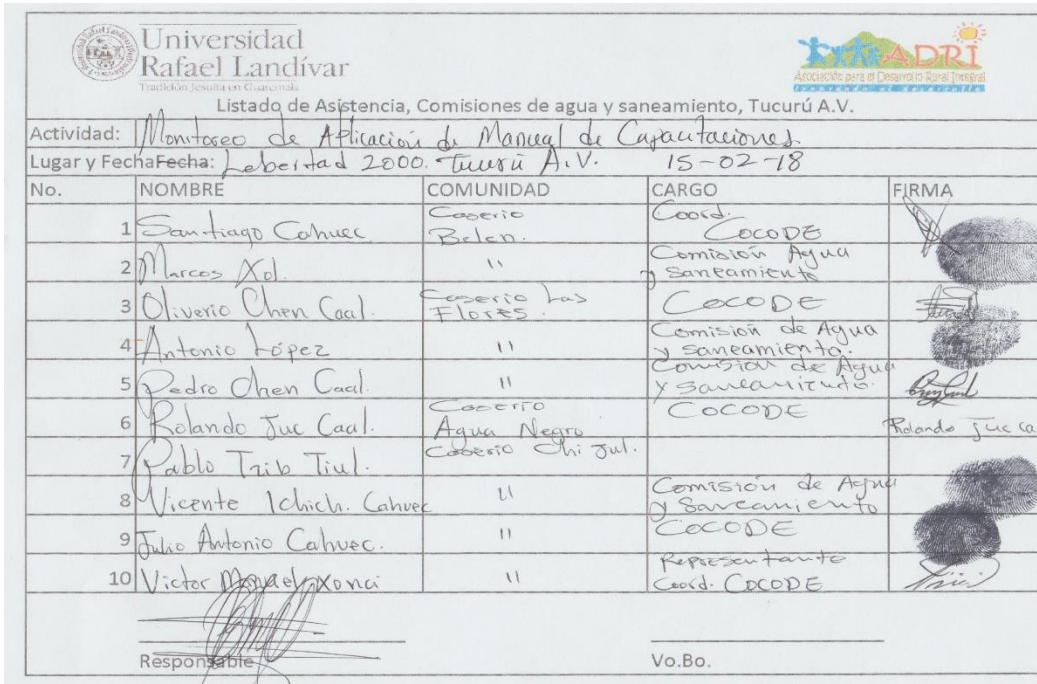 Universidad
Rafael Landívar
Tradición Jesuita en Guatemala
ADRI
Asociación para el Desarrollo Rural Integral
Listado de Asistencia, Comisiones de agua y saneamiento, Tucurú A.V.
Actividad: Monitoreo de Aplicación de Manual de Capacitaciones.
Lugar y FechaFecha: Lebertad 2000. Tucurú A.V. 15-02-18
No. NOMBRE COMUNIDAD CARGO FIRMA
1 Santiago Cahuec Caserio Belen. Coord. COCODE
2 Marcos Xol. " Comisión Agua y Saneamiento
3 Oliverio Chen Caal. Caserio Las Flores. COCODE
4 Antonio López " Comisión de Agua y saneamiento.
5 Pedro Chen Caal. " Comisión de Agua y saneamiento.
6 Rolando Juc Caal. Caserio Agua Negro COCODE Rolando Juc Ca
7 Pablo Tiul. Caserio Chi Jul.
8 Vicente Ichich. Cahuec " Comisión de Agua y Saneamiento
9 Julio Antonio Cahuec. " COCODE
10 Victor " Representante Coord. COCODE
Responsable Vo.Bo.